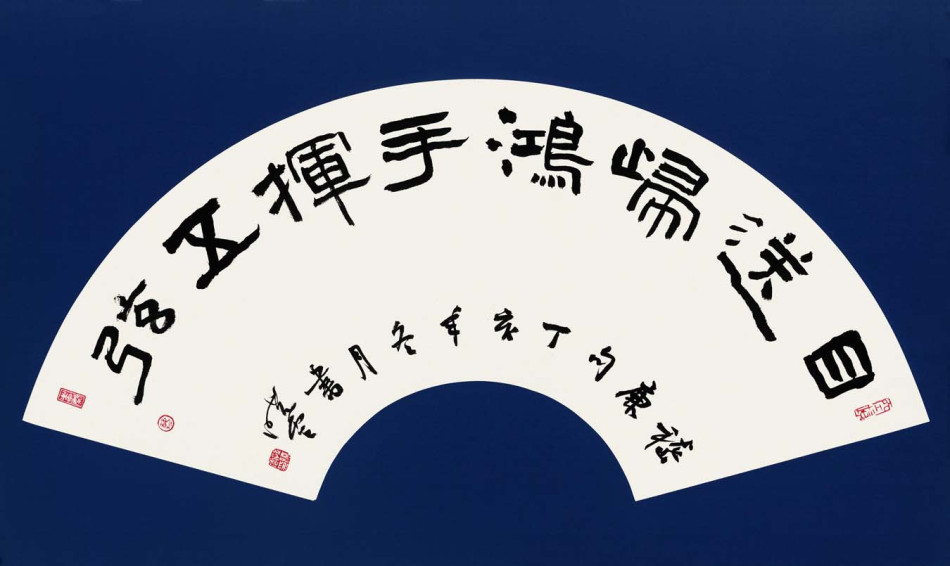 目送歸鴻手揮五弦
嵇康句丁亥年冬月書